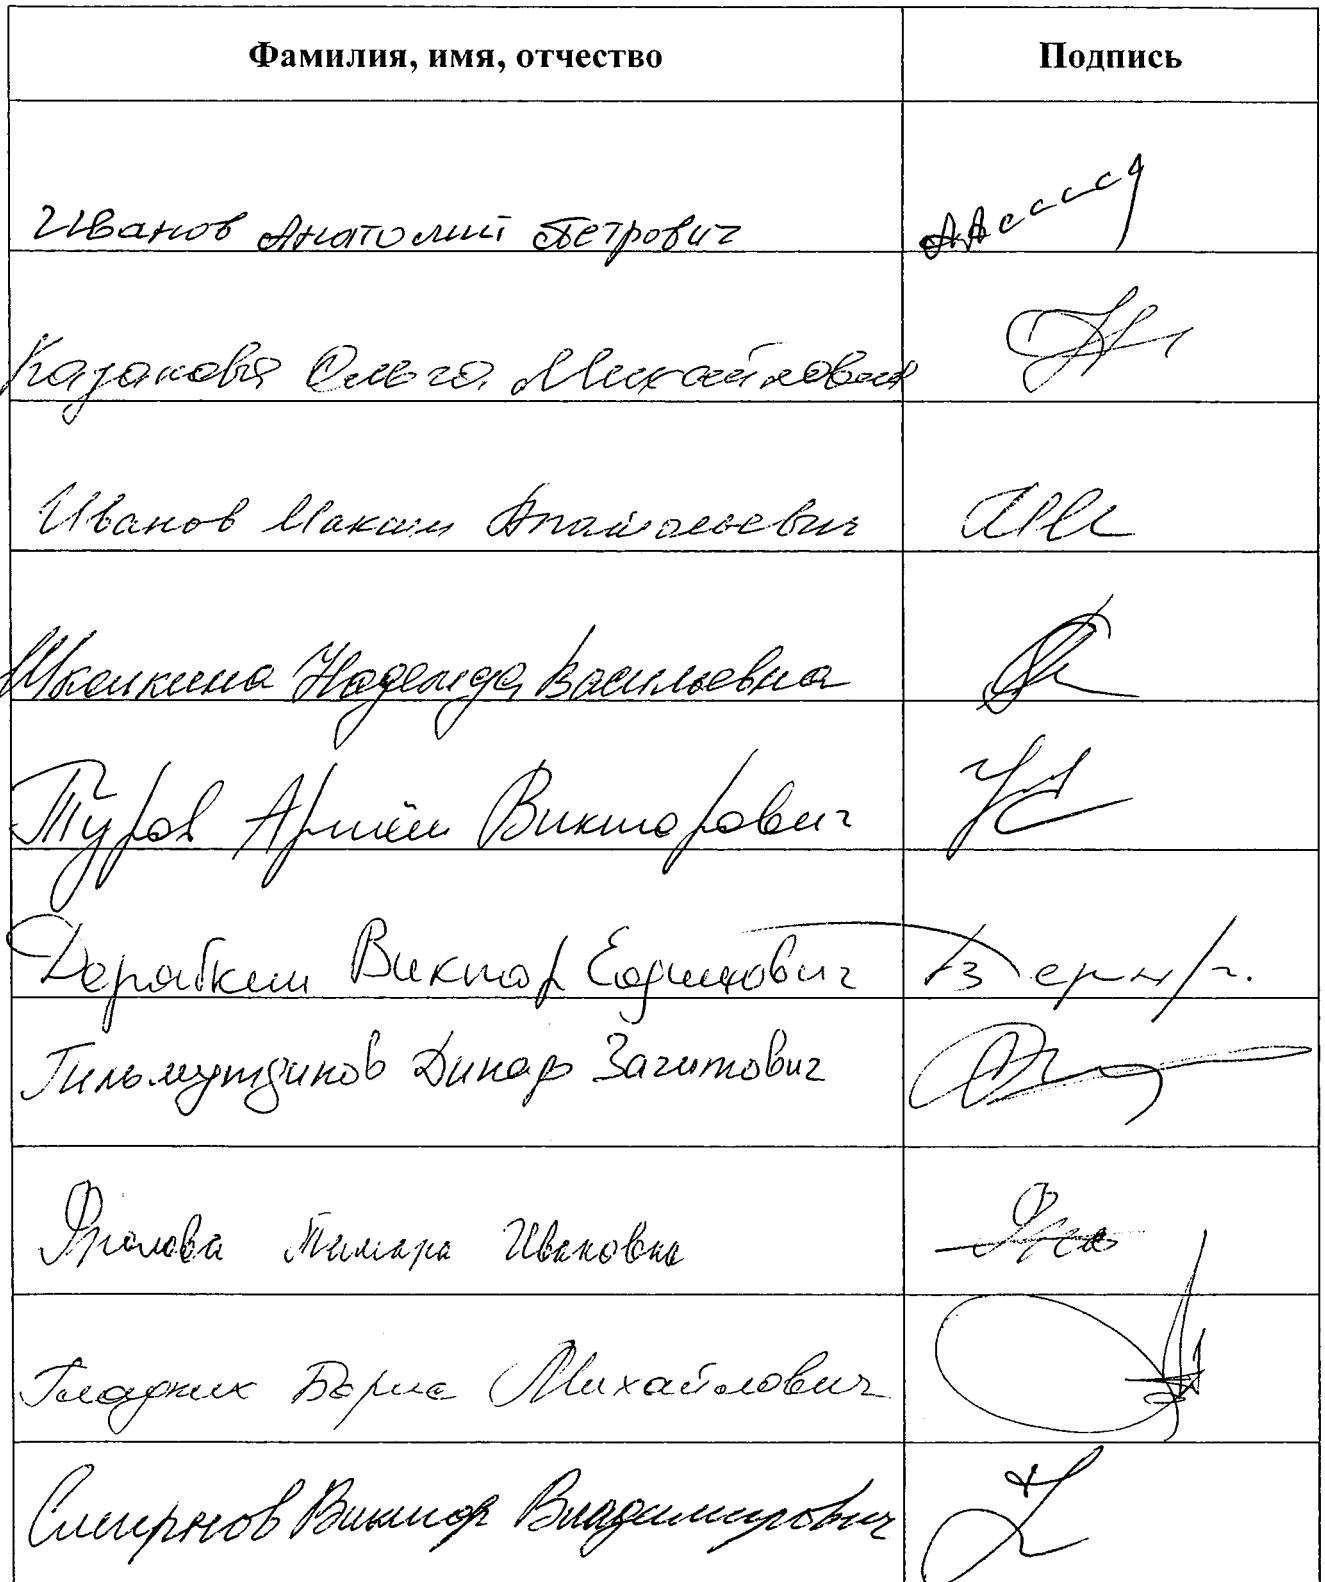 Фамилия, имя, отчество Подпись
Иванов Анатолий Петрович
Казакова Ольга Михайловна
Иванов Максим Анатольевич
Надежда Васильевна
Туров Артём Викторович
Дерябкин Виктор Ефимович
Гильмутдинов Динар Загитович
Фролова Тамара Ивановна
Гладких Борис Михайлович
Смирнов Виктор Владимирович